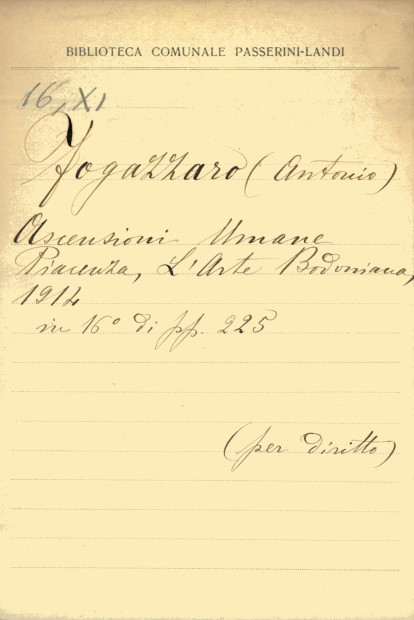 BIBLIOTECA COMUNALE PASSERINI-LANDI
16, XI
Fogazzaro (Antonio)
Ascensioni Umane
Piacenza, L'Arte Bodoniana,
1914
in 16° di pp. 225
(per diritto)